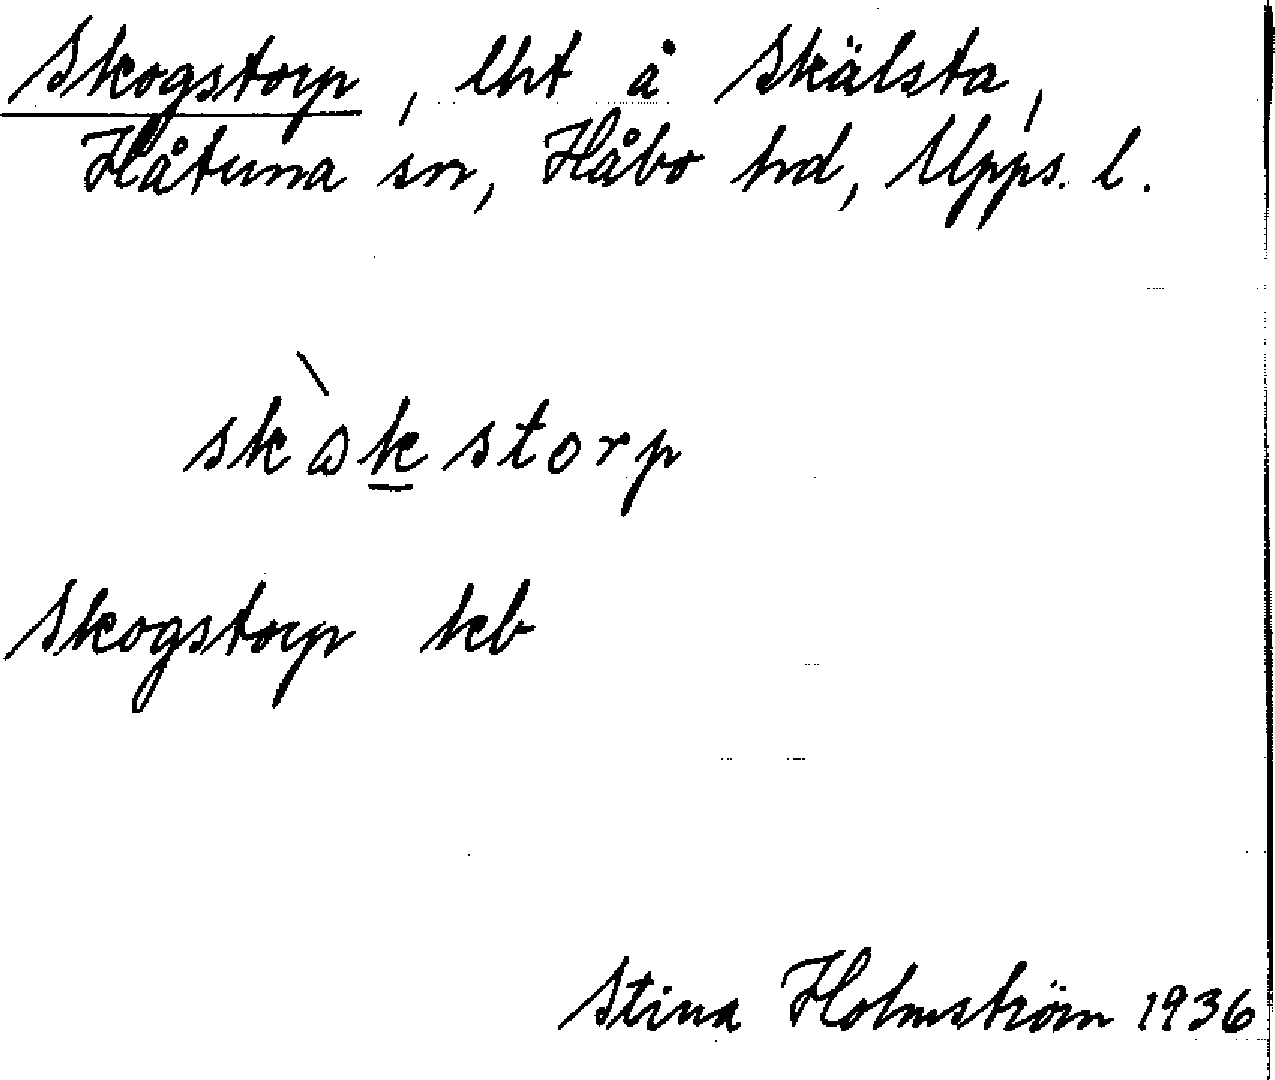 Skogstorp, lht å Skälsta,
Håtuna sn, Håbo hd, Upps. l.
skɷ̀kstorp
Skogstorp kb
Stina Holmström 1936